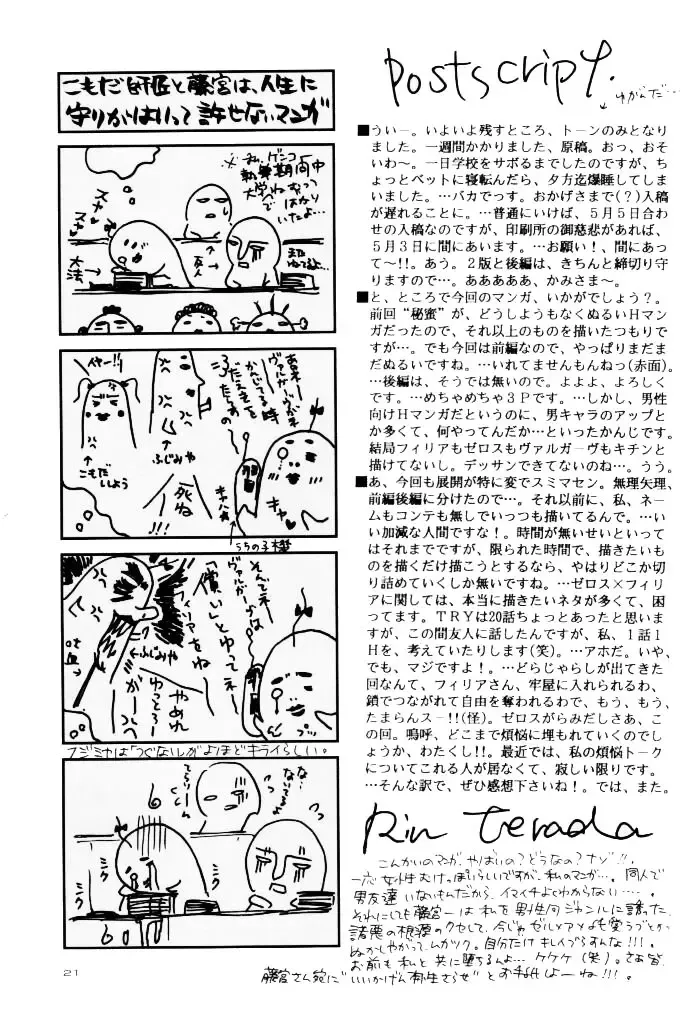 こもだ師匠と藤宮は、人生に
守りがはいって許せないマンガ
※私、ゲンコ
執筆期間中
大学ねむって
ばかり
いたよ…
スヤ
スヤ
大法
友人
イヤー!!
こもだ
いしよう
ふじみや
死ね
!!!
キャハハ
キャ
うちの子機
ヴァルガーヴが
かんじてる時
そんでネー
ヴァルガーヴは
「償い」とゆって
フィリアをねー
ふじみや
吐血
やめれ
ゆっとろー
がー
フジミヤは「つぐない」がよりほどキライらしい。
ミク
ミク
21
postscript.
ゆがんだ…
■ういー。いよいよ残すところ、トーンのみとなり
ました。一週間かかりました、原稿。おっ、おそ
いわ〜。一日学校をサボるまでしたのですが、ち
ょっとベットに寝転んだら、夕方迄爆睡してしま
いました。…バカでっす。おかげさまで(?)入稿
が遅れることに。…普通にいけば、5月5日合わ
せの入稿なのですが、印刷所の御慈悲があれば、
5月3日に間にあいます。…お願い!、間にあっ
て〜!!。あう。2版と後編は、きちんと締切り守
りますので…。ああああぁ、かみさま〜。
■と、ところで今回のマンガ、いかがでしょう?。
前回“秘蜜”が、どうしようもなくぬるいHマン
ガだったので、それ以上のものを描いたつもりで
すが…。でも今回は前編なので、やっぱりまだま
だぬるいですね。…いれてませんもんねっ(赤面)。
…後編は、そうでは無いので。よよよ、よろしく
です。…めちゃめちゃ3Pです。…しかし、男性
向けHマンガだというのに、男キャラのアップと
か多くて、何やってんだか…といったかんじです。
結局フィリアもゼロスもヴァルガーヴもキチンと
描けてないし。デッサンできてないのね…。うう。
■あ、今回も展開が特に変でスミマセン。無理矢理、
前編後編に分けたので…。それ以前に、私、ネー
ムもコンテも無しでいっつも描いてるんで。…い
い加減な人間ですな!。時間が無いせいといって
はそれまでですが、限られた時間で、描きたいも
のを描くだけ描こうとするなら、やはりどこか切
り詰めていくしか無いですね。…ゼロス×フィリ
アに関しては、本当に描きたいネタが多くて、困
ってます。TRYは20話ちょっとあったと思いま
すが、この間友人に話したんですが、私、1話1
Hを、考えていたりします(笑)。…アホだ。いや、
でも、マジですよ!。…どらじゃらしが出てきた
回なんて、フィリアさん、牢屋に入れられるわ、
鎖でつながれて自由を奪われるわで、もう、もう、
たまらんスー!!(怪)。ゼロスがらみだしさあ、こ
の回。嗚呼、どこまで煩悩に埋もれていくのでし
ょうか、わたくし!!。最近では、私の煩悩トーク
についてこれる人が居なくて、寂しい限りです。
…そんな訳で、ぜひ感想下さいね!。では、また。
Rin terada
こんかいのマンガ、やばいの?どうなの?ナゾ!!。
一応女性むけっぽいらしいですが、私のマンガ…。同人で
男友達いないもんだから、イマイチよくわからない…。
それにしても藤宮ーは私を男性向ジャンルに誘った
諸悪の根源のクセして、今じゃゼル×アメも愛うづとか
ぬかしやがって、ムカツク。自分だけキレイぶるすんな!!!。
お前も私と共に堕ちるんよ…ケケケ(笑)。さあ皆、
藤宮さん宛に“いいかげん再生さらせ”とお手紙しよーね!!!。